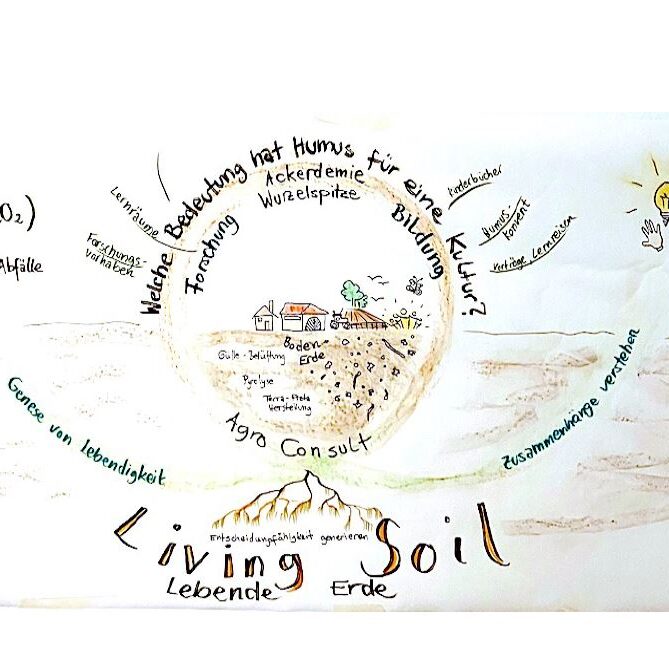 Welche Bedeutung hat Humus für eine Kultur?
Ackerdemie
Wurzelspitze
Forschung
Bildung
Lernräume
Forschungs-
vorhaben
Kinderbücher
Humus-
Konvent
Vorträge, Lernreisen
O₂)
Abfälle
Boden-
Erde
Gülle-Belüftung
Pyrolyse
Terra-Preta
Herstellung
Agro Consult
Genese von Lebendigkeit
Zusammenhänge verstehen
Entscheidungsfähigkeit generieren
Living Soil
Lebende Erde